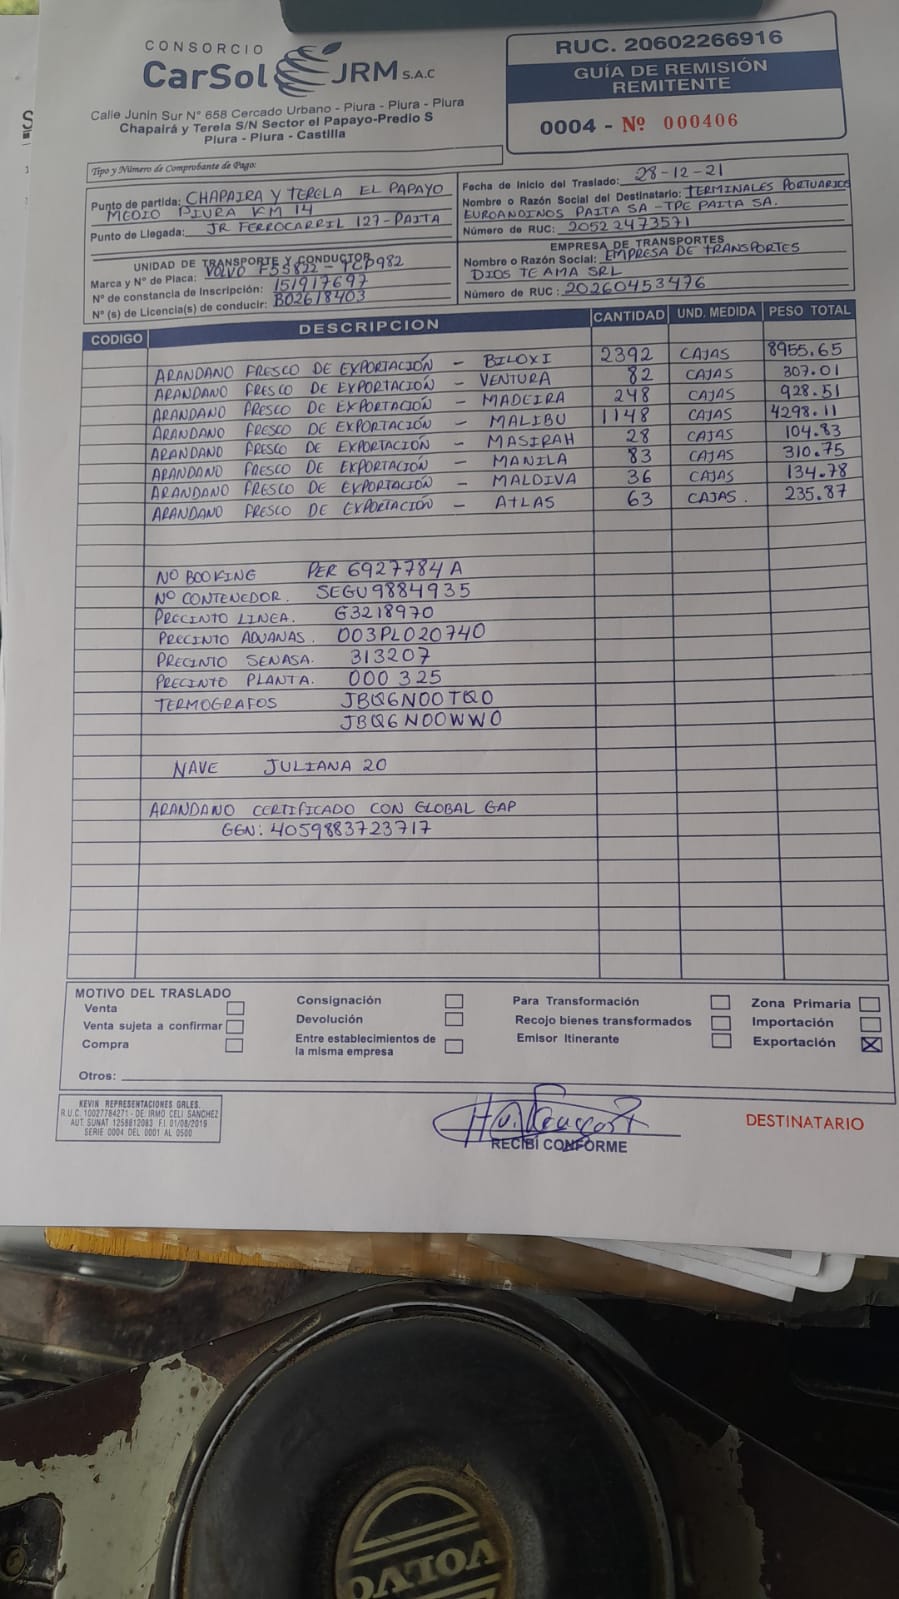 CONSORCIO
CarSol JRM S.A.C
Calle Junin Sur N° 658 Cercado Urbano - Piura - Piura - Piura
Chapairá y Terela S/N Sector el Papayo-Predio S
Piura - Piura - Castilla
RUC. 20602266916
GUÍA DE REMISIÓN
REMITENTE
0004 - Nº 000406
Tipo y Número de Comprobante de Pago:
Punto de partida: CHAPAIRA Y TERELA EL PAPAYO
MEDIO PIURA KM 14
Punto de Llegada: JR FERROCARRIL 127-PAITA
Fecha de Inicio del Traslado: 28-12-21
Nombre o Razón Social del Destinatario: TERMINALES PORTUARIOS
EUROANDINOS PAITA SA - TPE PAITA SA.
Número de RUC: 20522473571
UNIDAD DE TRANSPORTE Y CONDUCTOR
Marca y N° de Placa: VOLVO F5S822 - TCP982
N° de constancia de Inscripción: 151917697
N° (s) de Licencia(s) de conducir: B02618403
EMPRESA DE TRANSPORTES
Nombre o Razón Social: EMPRESA DE TRANSPORTES
DIOS TE AMA SRL
Número de RUC: 20260453476
CODIGO DESCRIPCION CANTIDAD UND. MEDIDA PESO TOTAL
ARANDANO FRESCO DE EXPORTACIÓN - BILOXI 2392 CAJAS 8955.65
ARANDANO FRESCO DE EXPORTACIÓN - VENTURA 82 CAJAS 307.01
ARANDANO FRESCO DE EXPORTACIÓN - MADEIRA 248 CAJAS 928.51
ARANDANO FRESCO DE EXPORTACIÓN - MALIBU 1148 CAJAS 4298.11
ARANDANO FRESCO DE EXPORTACIÓN - MASIRAH 28 CAJAS 104.83
ARANDANO FRESCO DE EXPORTACIÓN - MANILA 83 CAJAS 310.75
ARANDANO FRESCO DE EXPORTACIÓN - MALDIVA 36 CAJAS 134.78
ARANDANO FRESCO DE EXPORTACIÓN - ATLAS 63 CAJAS. 235.87
NO BOOKING PER 6927784 A
Nº CONTENEDOR. SEGU9884935
PRECINTO LINEA. G3218970
PRECINTO ADUANAS. 003PL020740
PRECINTO SENASA. 313207
PRECINTO PLANTA. 000 325
TERMOGRAFOS JBQ6N00TQ0
JBQ6N00WW0
NAVE JULIANA 20
ARANDANO CERTIFICADO CON GLOBAL GAP
GGN: 4059883723717
MOTIVO DEL TRASLADO
Venta
Venta sujeta a confirmar
Compra
Consignación
Devolución
Entre establecimientos de
la misma empresa
Para Transformación
Recojo bienes transformados
Emisor Itinerante
Zona Primaria
Importación
Exportación X
Otros:
KEVIN REPRESENTACIONES GRLES.
R.U.C. 10027784271 - DE: IRMO CELI SANCHEZ
AUT. SUNAT 1258812083 F.I. 01/08/2019
SERIE 0004 DEL 0001 AL 0500
RECIBÍ CONFORME
DESTINATARIO
VOLVO